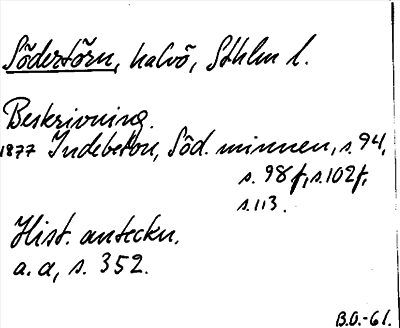 Södertörn, halvö, Sthlm l.
Beskrivning.
1877 Indebetou, Söd. minnen, s. 94,
s. 98f, s. 102f,
s. 113.
Hist. anteckn.
a. a, s. 352.
B.O.-61.